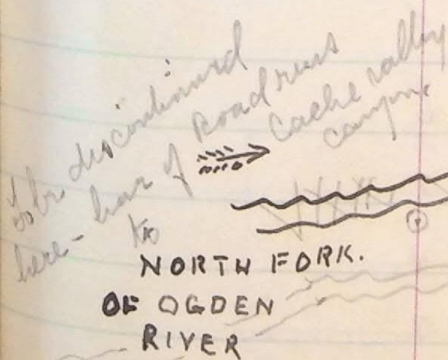 To be discontinued
here - line of Road runs
to Cache valley
canyon.
NORTH FORK.
OF OGDEN
RIVER